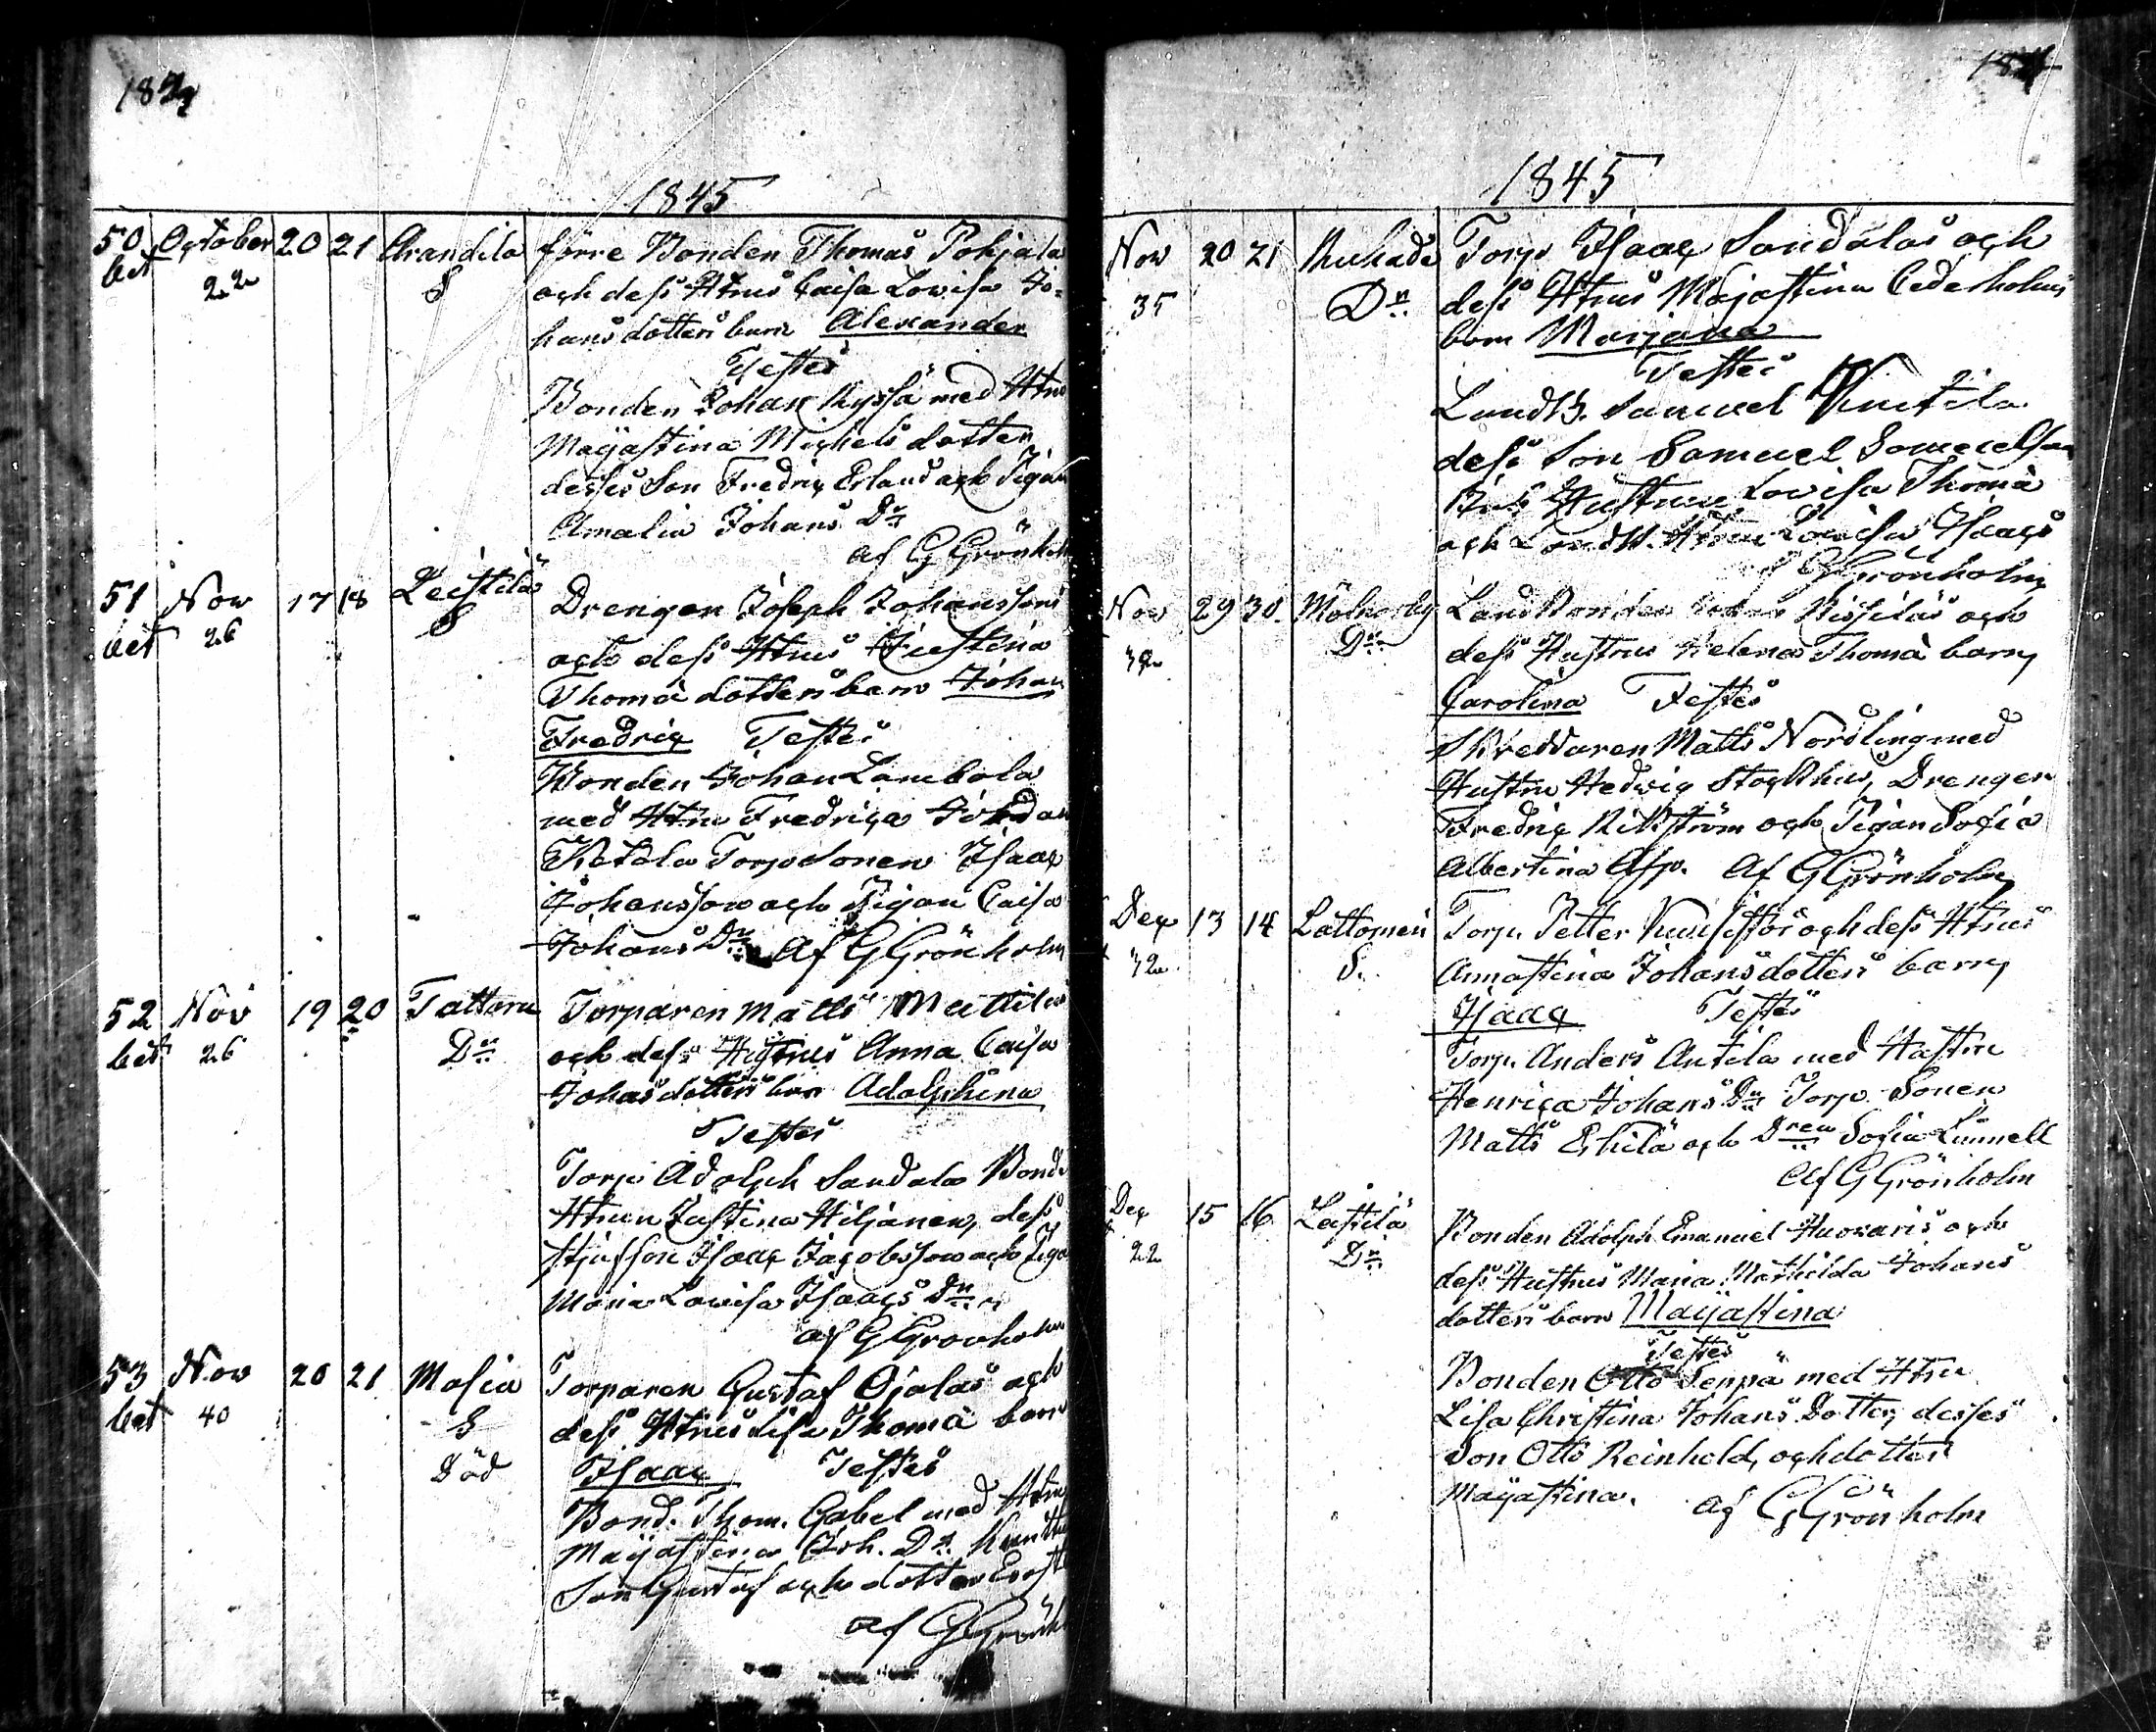 1845
50 October 20 21 Arandila förre Bonden Thomas Pohjala
bet 22 S och dess Htrus Caisa Lovisa Jo=
hans dotters barn Alexander
Testes
Bonden Johan Kyssä med Htru
Majastina Michels dotter
desses Son Fredric Erland och Pigan
Amalia Johans Dr
af G Grönholm
51 Nov 17 18 Leistilä Drengen Joseph Johanssons
bet 26 S och dess Htrus Christina
Thomä dotters barn Johan
Fredric Testes
Bonden Johan Lambola
med Htru Fredrica
Ketola Torp Sonen Isaac
Johansson och Pigan Caisa
Johans Dr af G Grönholm
52 Nov 19 20 Tattara Torparen Matts Mattila
bet 26 Dr och dess Hustrus Anna Caisa
Johans dotters barn Adolphina
Testes
Torp Adolph Sandala Bond
Htrun Justina Hiljanen, dess
Stjufson Isaac Jacobsson och Piga
Maria Lovisa Isaacs Dr
af G Grönholm
53 Nov 20 21 Masia Torparen Gustaf Ojalas och
bet 40 S dess Htrus Lisa Thomä barn
Död Isaac Testes
Bond. Thom. Gabel med Htru
Majastina Joh. Dr
Son Gustaf och dotter
af G Grönh
1845
Nov 20 21 Ruhade Torp Isaac Sandalas och
35 Dr dess Htrus Majastina Cederholms
barn Mariana
Testes
Landb. Samuel Knutila
dess Son Samuel Samuelsson
Hustrun Lovisa Thomä
och Landb. Htru Lovisa Isaacs
G Grönholm
Nov 29 30 Molnorby Landbonden Johan Nissilas och
32 Dr dess Hustrus Helena Thomä barn
Carolina Testes
Skreddaren Matts Nordling med
Hustru Hedvig Stockhus, Drengen
Fredric Rikström och Pigan Sofia
Albertina Asp. Af G Grönholm
Dec 13 14 Lattomeri Torp. Petter Kuusistos och dess Htrus
32 S. Annastina Johans dotters barn
Isaac Testes
Torp. Anders Antila med Hustru
Henrica Johans Dr Torp Sonen
Matts Eskilä och Sofia Linnell
Af G Grönholm
Dec 15 16 Lastila Bonden Adolph Emanuel Huovaris och
22 Dr dess Hustrus Maria Mathilda Johans
dotters barn Majastina
Testes
Bonden Otto Seppä med Htru
Lisa Christina Johans Dotter, desses
Son Otto Reinhold, och dotter
Majastina. af G Grönholm